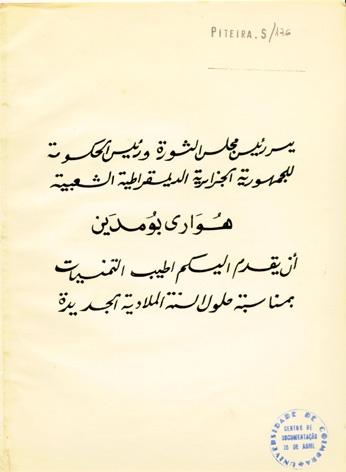 PITEIRA.S/136
يسر رئيس مجلس الثورة ورئيس الحكومة
للجمهورية الجزائرية الديمقراطية الشعبية
هوارى بومدين
أن يقدم اليكم اطيب التمنيات
بمناسبة حلول السنة الملادية الجديدة
UNIVERSIDADE DE COIMBRA
CENTRO DE
DOCUMENTAÇÃO
25 DE ABRIL